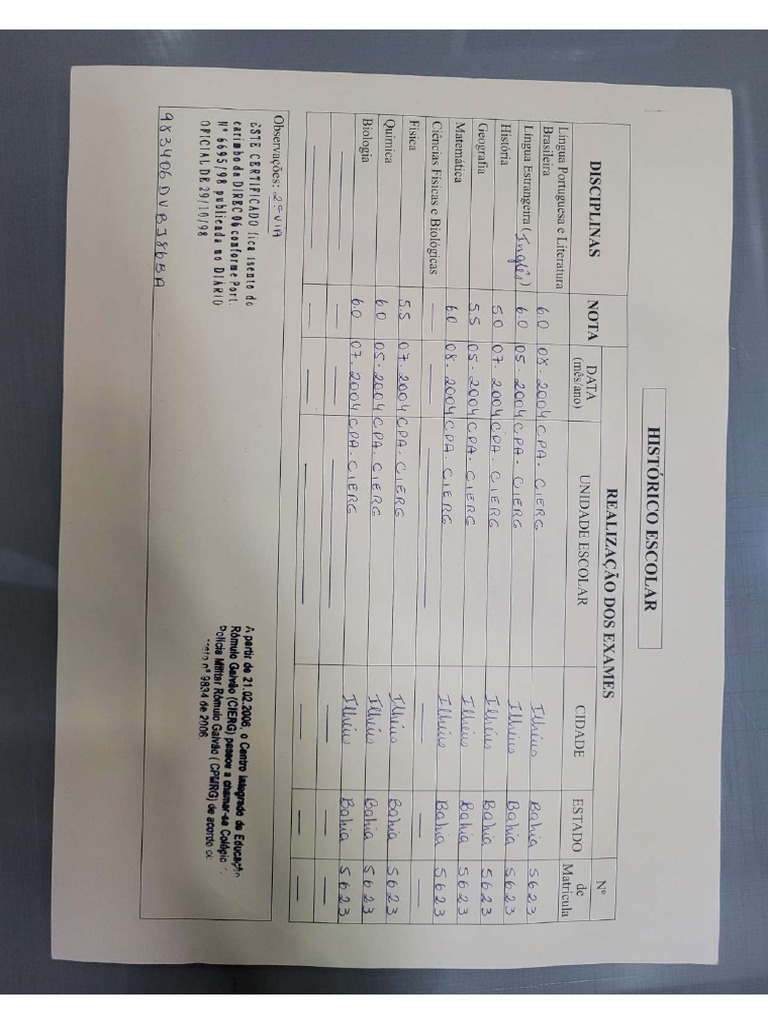 HISTÓRICO ESCOLAR
DISCIPLINAS REALIZAÇÃO DOS EXAMES
NOTA DATA (mês/ano) UNIDADE ESCOLAR CIDADE ESTADO Nº de Matrícula
Língua Portuguesa e Literatura Brasileira 6.0 08.2004 CPA. CIERG Ilhéus Bahia 5623
Língua Estrangeira (Inglês) 6.0 05.2004 CPA. CIERG Ilhéus Bahia 5623
História 5.0 07.2004 CPA. CIERG Ilhéus Bahia 5623
Geografia 5.5 05.2004 CPA. CIERG Ilhéus Bahia 5623
Matemática 6.0 08.2004 CPA. CIERG Ilhéus Bahia 5623
Ciências Físicas e Biológicas
Física 5.5 07.2004 CPA. CIERG Ilhéus Bahia 5623
Química 6.0 05.2004 CPA. CIERG Ilhéus Bahia 5623
Biologia 6.0 07.2004 CPA. CIERG Ilhéus Bahia 5623
Observações: 2ª VIA
ESTE CERTIFICADO fica isento do
carimbo da DIREC 06 conforme Port.
Nº 6695/98 publicada no DIÁRIO
OFICIAL DE 29/10/98
A partir de 21.02.2006, o Centro Integrado de Educação
Rômulo Galvão (CIERG) passou a chamar-se Colégio
Polícia Militar Rômulo Galvão (CPMRG) de acordo
nº 9834 de 2006.
983406DVB3865A